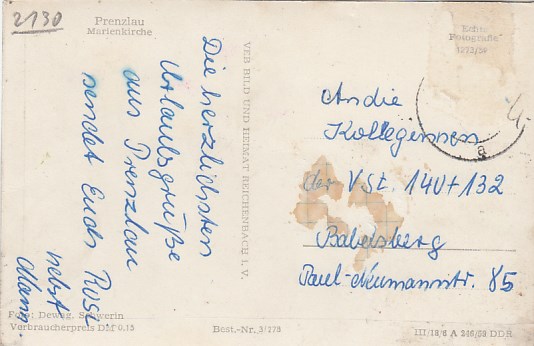 2130
Prenzlau
Marienkirche
Die herzlichsten
Urlaubsgrüße
aus Prenzlau
sendet Euch Rosi
nebst
Mann.
VEB BILD UND HEIMAT REICHENBACH I. V.
Echte
Fotografie
1272/59
Andie
Kolleginnen
der VSt. 140+132
Babelsberg
Paul-Neumannstr. 85
a
Foto: Dewag, Schwerin
Verbraucherpreis DM 0.15
Best.-Nr. 3/278
III/18/6 A 246/60 DDR